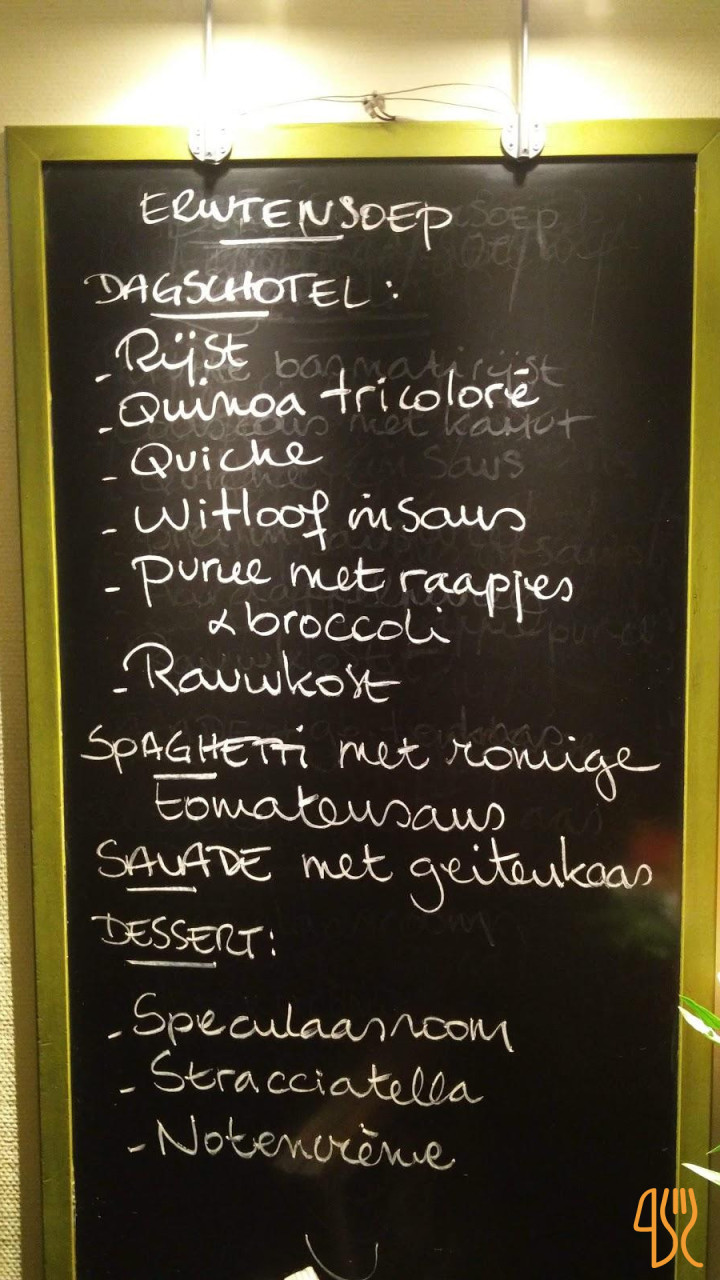 ERWTENSOEP
DAGSCHOTEL:
- Rijst
- Quinoa tricolore
- Quiche
- Witloof in saus
- puree met raapjes
& broccoli
- Rauwkost
SPAGHETTI met romige
tomatensaus
SALADE met geitenkaas
DESSERT:
- Speculaasroom
- Stracciatella
- Notencrème